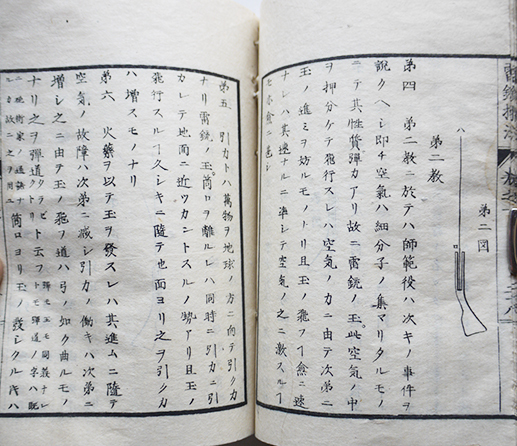 第二図
ハ
第二教
第四 第二教ニ於テハ師範役ハ次キノ事件ヲ
説クヘシ即チ空氣ハ細分子ノ集マリタルモノ
ニテ其性質弾力アリ故ニ雷銃ノ玉此空氣ノ中
ヲ押分ケテ飛行スレハ空氣ノ力ニ由テ次第ニ
玉ノ進ミヲ妨ルモノナリ且玉ノ飛フ愈速
ナレハ其速ナルニ準シテ空氣ノ之ニ敵スル
第五 引力トハ萬物ヲ地球ノ方ニ向テ引ク力
ナリ雷銃ノ玉筒口ヲ離ルレハ同時ニ引力ニ引
カレテ地面ニ近ツカントスルノ勢アリ且玉ノ
飛行スルヿ久シキニ随テ地面ヨリ之ヲ引ク力
ハ増スモノナリ
第六 火藥ヲ以テ玉ヲ發スレハ其進ムニ随テ
空氣ノ故障ハ次第ニ減シ引力ノ働キハ次第ニ
増シ之ニ由テ玉ノ飛フ道ハ弓ノ如ク曲ルモノ
ナリ之ヲ弾道ト云フ
筒口ヨリ玉ノ發シタル時ハ